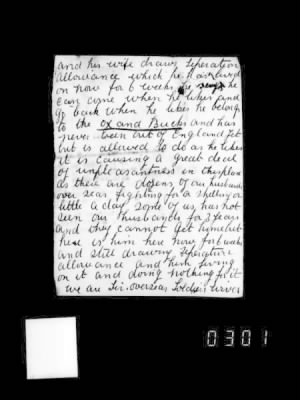 and his wife drawing Seperation
allowance which he has lived
on now for 6 weeks he says he
can come when he likes and
go back when he likes he belongs
to the Ox and Bucks and has
never been out of England yet
but is allowed to do as he likes
it is causing a great deal
of unpleasantness in this place
as there are dozens of our husbands
over seas fighting for a shilling or
little a day some of us has not
seen our husbands for 3 years
and they cannot get home but
here is him here now for 6 weeks
and still drawing seperation
allowance and him living
on it and doing nothing for it
we are Sir overseas Soldiers wives
0301